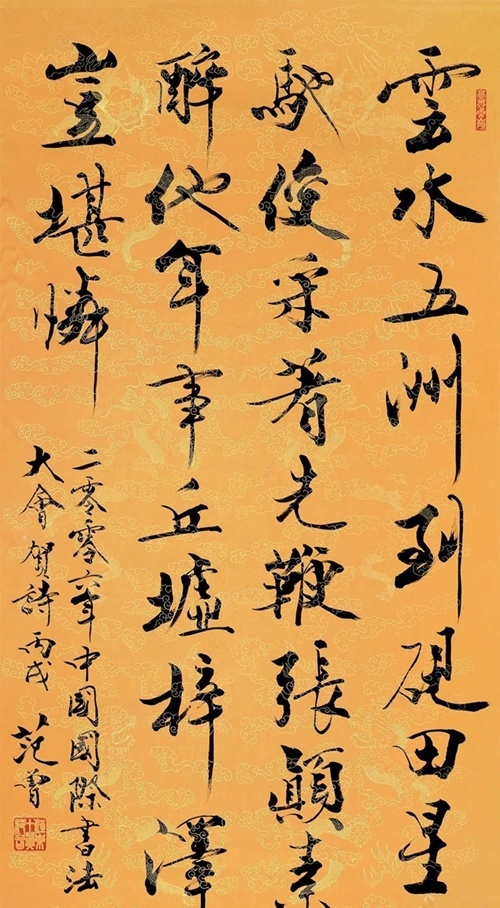 雲水五洲到硯田星
馳使采著先鞭張顛素
醉他年事丘墟梓澤
豈堪憐
二零零六年中國國際書法
大會賀詩丙戌范曾